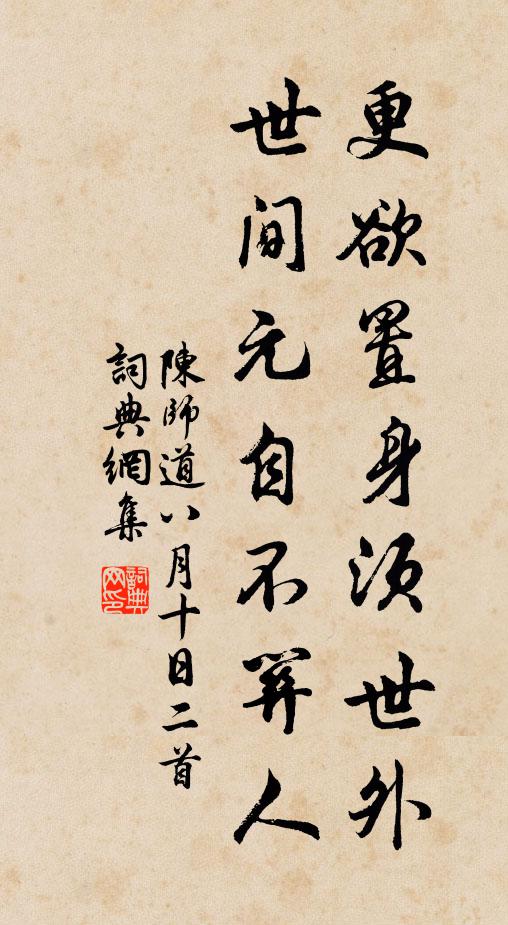 更欲置身須世外
世間元自不關人
陳師道八月十日二首
詞典網集
詞典
网印